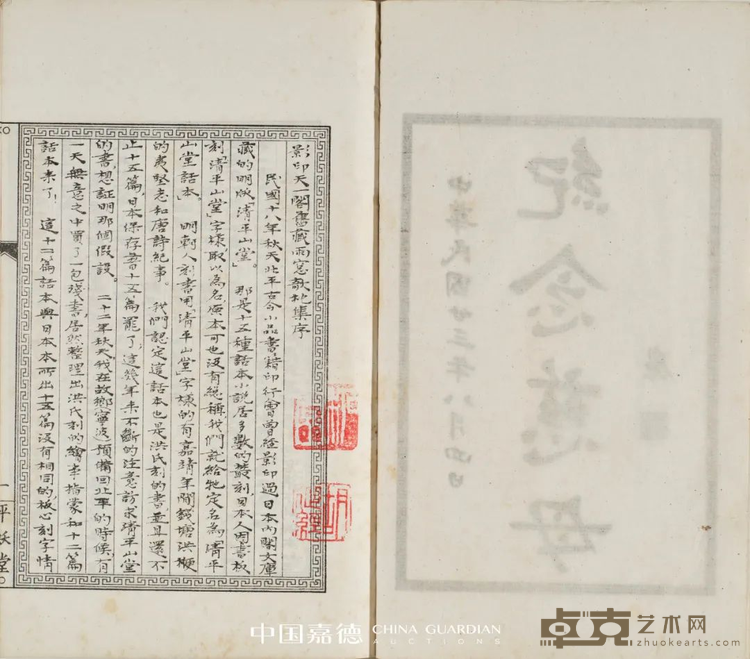 紀念慈母
中華民國廿三年八月四日
影印天一閣舊藏雨窗欹枕集序
民國十八年秋天北平古今小品書籍印行會曾經影印過日本內閣文庫
藏的明版「清平山堂」。那是十五種話本小說居多數的叢刻日本人因書板
刻「清平山堂」字樣取以為名原本可也沒有總稱我們就給牠定名為「清平
山堂話本」。明刻人刻書用「清平山堂」字樣的有嘉靖年間錢塘洪楩
的夷堅志和唐詩紀事。我們認定這話本也是洪氏刻的書並且還不
止十五篇,日本保存著十五篇罷了,這幾年來不斷的注意訪求清平山堂
的書,想証明那個假設。二十二年秋天我在故鄉寧波預備回北平的時候,有
一天無意之中買了一包殘書,居然整理出洪氏刻的繪事指蒙和十二篇
話本來了。這十二篇話本與日本本所出十五篇沒有相同的板心刻字情
一
平妖堂
中国嘉德 CHINA GUARDIAN
AUCTIONS
卓克艺术网
zhuokearts.com